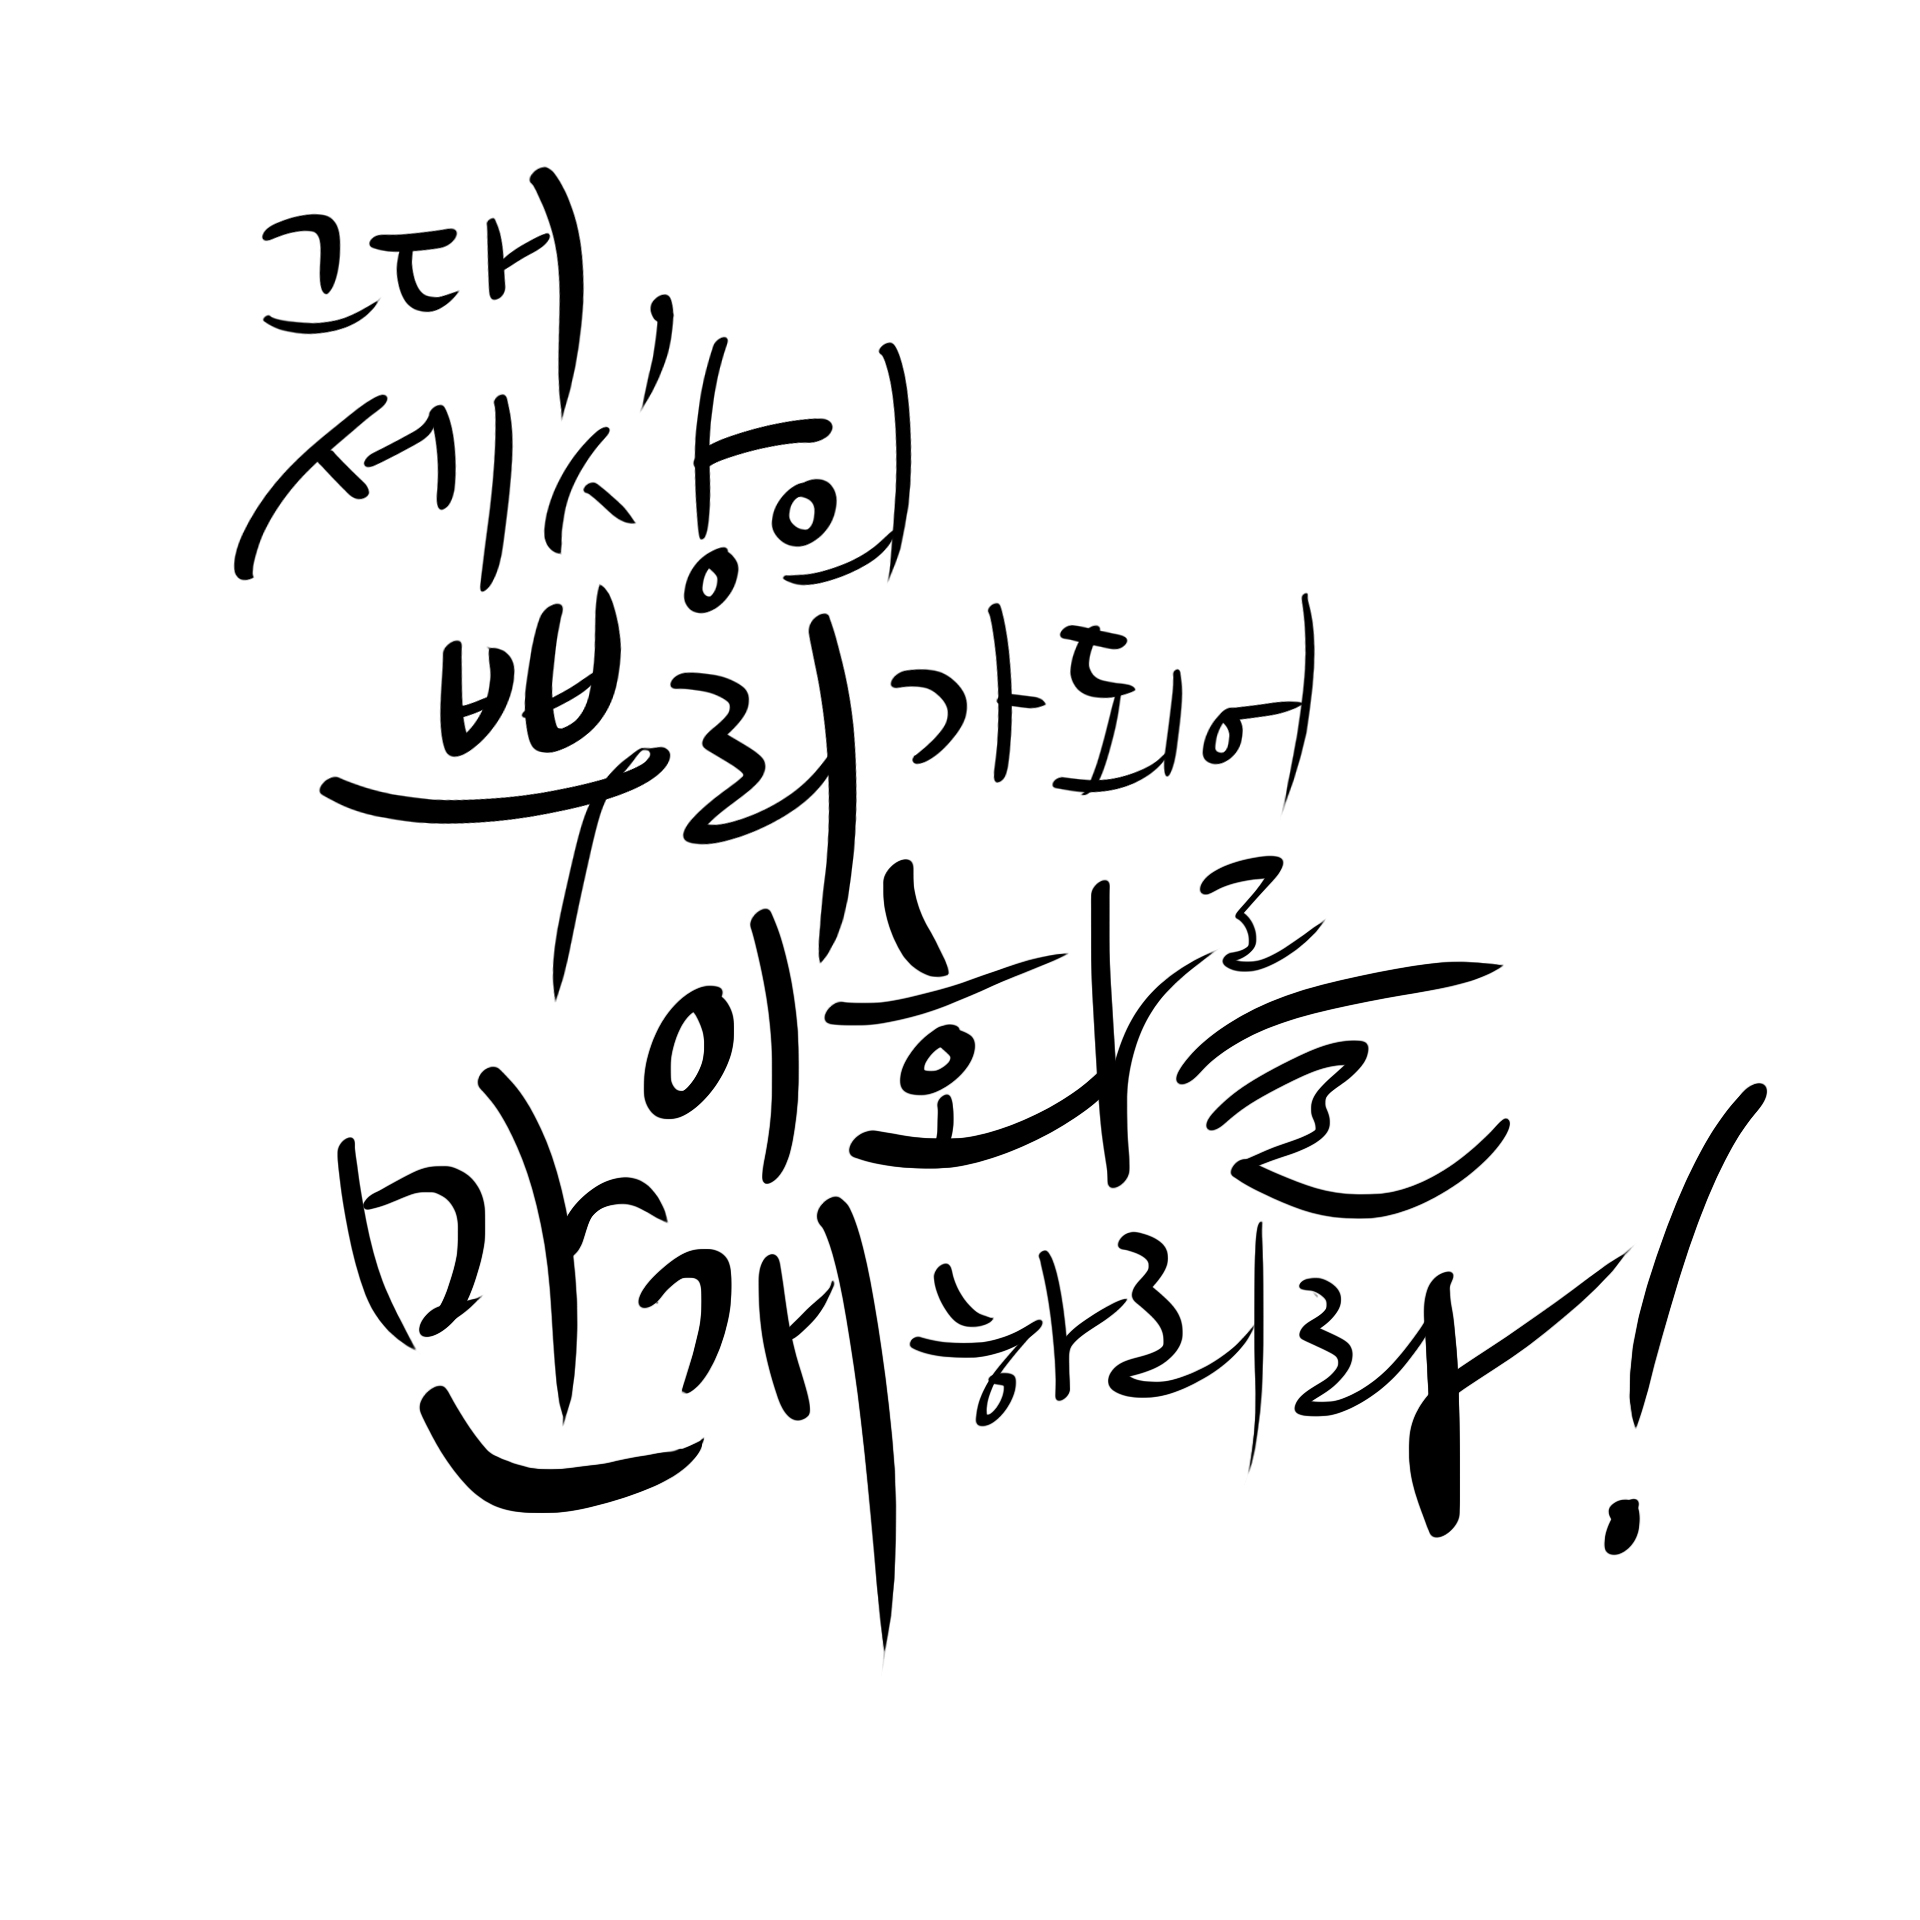 그대,
세상의
뿌리가 되어
이화를
만개하리라!